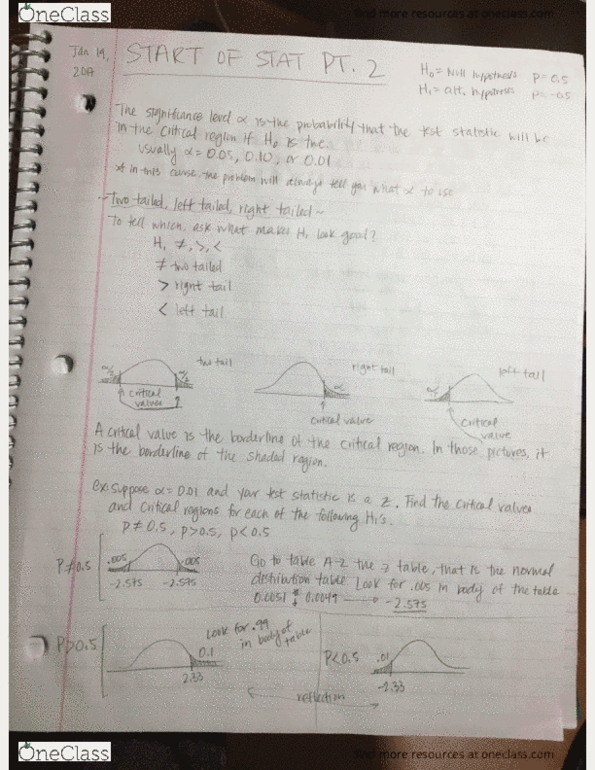 OneClass
find more resources at oneclass.com
Jan 19,
2017
START OF STAT PT. 2
H₀ = Null hypothesis P = 0.5
H₁ = alt. hypothesis P = 0.5
The significance level α is the probability that the test statistic will be
in the critical region if H₀ is true.
usually α = 0.05, 0.10, or 0.01
* In this course, the problem will always tell you what α to use
~ Two tailed, left tailed, right tailed ~
To tell which, ask what makes H₁ look good?
H₁ ≠, >, <
≠ two tailed
> right tail
< left tail
α/2 α/2 two tail
critical
values
α right tail
critical value
α left tail
critical
value
A critical value is the borderline of the critical region. In those pictures, it
is the borderline of the shaded region.
ex: suppose α = 0.01 and your test statistic is a z. Find the critical values
and critical regions for each of the following H₁'s.
P ≠ 0.5, P > 0.5, P < 0.5
P ≠ 0.5 .005 .005
-2.575 -2.575
Go to table A-2 the z table, that is the normal
distribution table. Look for .005 in body of the table
0.0051 & 0.0049 → -2.575
P > 0.5 0.1
2.33
Look for .99
in body of
table
P < 0.5 .01
-2.33
reflection
OneClass
find more resources at oneclass.com